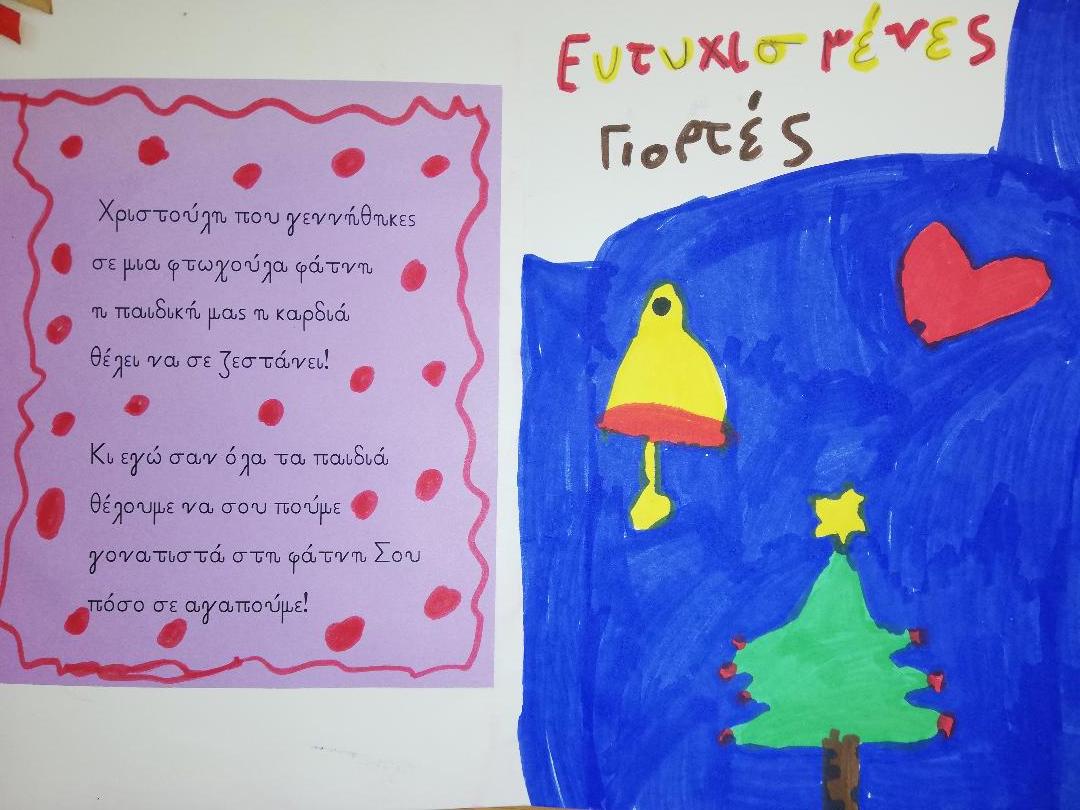 Χριστούλη που γεννήθηκες
σε μια φτωχούλα φάτνη
η παιδική μας η καρδιά
θέλει να σε ζεστάνει!
Κι εγώ σαν όλα τα παιδιά
θέλουμε να σου πούμε
γονατιστά στη φάτνη Σου
πόσο σε αγαπούμε!
Ευτυχισμένες
Γιορτές